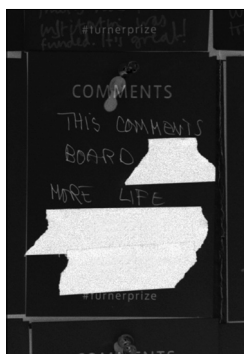 #turnerprize
COMMENTS
THIS COMMENTS
BOARD
MORE LIFE
#turnerprize
COMMENTS